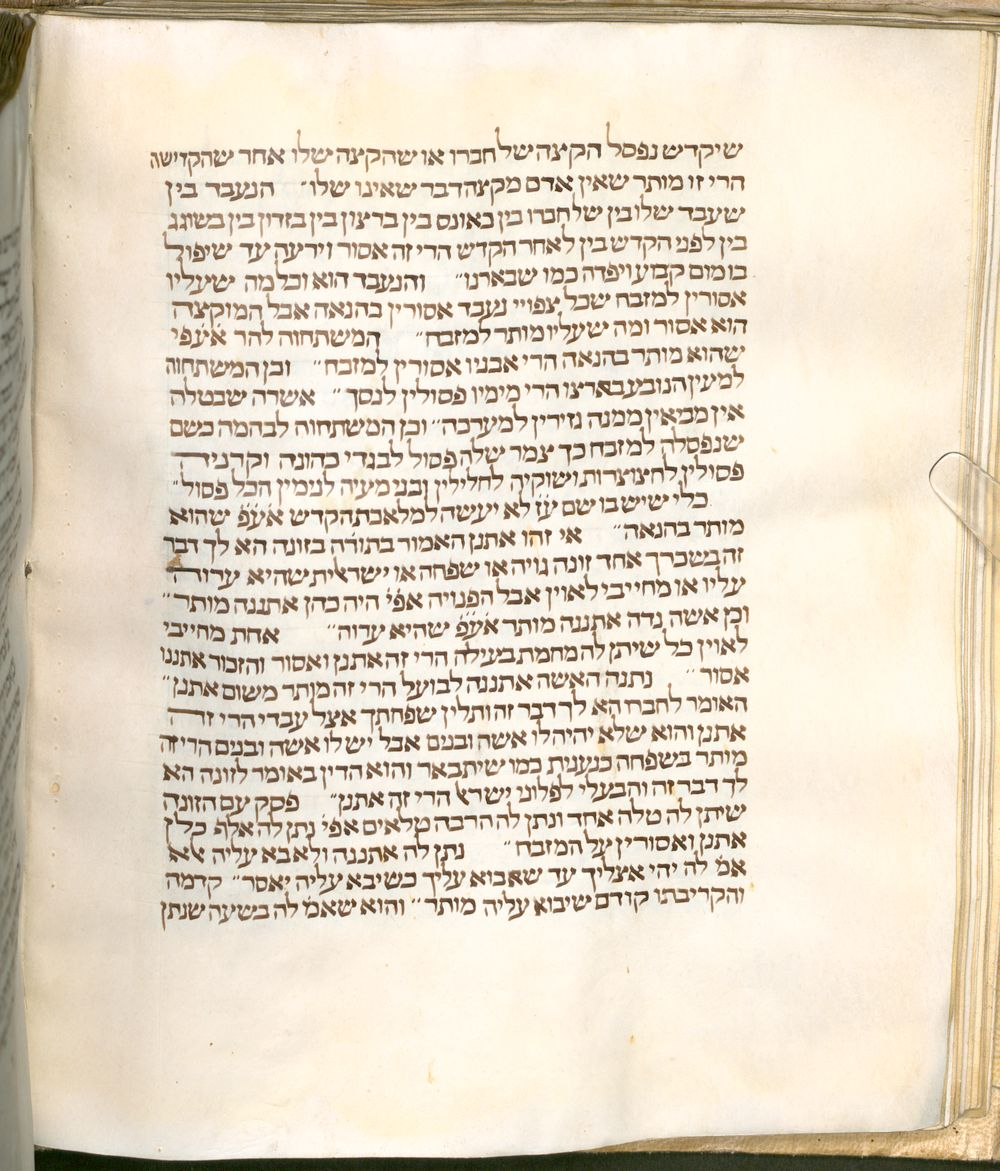 שיקדש נפסל הקצה של חברו או שהקצה שלו אחר שהקדישה
הרי זו מותר שאין אדם מקצה דבר שאינו שלו״ הנעבד בין
שעבד שלו בין של חברו בין באונס בין ברצון בין בזדון בין בשוגג
בין לפני הקדש בין לאחר הקדש הרי זה אסור וירעה עד שיפול
בו מום קבוע ויפדה כמו שבארנו״ והנעבד הוא וכל מה שעליו
אסורין למזבח שכל צפויי נעבד אסורין בהנאה אבל המוקצה
הוא אסור ומה שעליו מותר למזבח״ המשתחוה להר אעפי
שהוא מותר בהנאה הרי אבניו אסורין למזבח״ וכן המשתחוה
למעין הנובע בארצו הרי מימיו פסולין לנסך״ אשרה שבטלה
אין מביאין ממנה גזירין למערכה״ וכן המשתחוה לבהמה כשם
שנפסלה למזבח כך צמר שלה פסול לבגדי כהונה וקרניה
פסולין לחצוצרות ושוקיה לחלילין ובני מעיה לנימין הכל פסול״
כלי שיש בו שם עז לא יעשה למלאכת הקדש אעפ שהוא
מותר בהנאה״ אי זהו אתנן האמור בתורה בזונה הא לך דבר
זה בשכרך אחד זונה גויה או שפחה או ישראלית שהיא ערוה
עליו או מחייבי לאוין אבל הפנויה אפי היה כהן אתננה מותר״
וכן אשה נדה אתננה מותר אעפ שהיא ערוה״ אחת מחייבי
לאוין כל שיתן לה מחמת בעילה הרי זה אתנן ואסור והזכור אתננו
אסור״ נתנה האשה אתננה לבועל הרי זה מותר משום אתנן״
האומר לחברו הא לך דבר זה ותלין שפחתך אצל עבדי הרי זה
אתנן והוא שלא יהיה לו אשה ובנים אבל יש לו אשה ובנים הרי זה
מותר בשפחה כנענית כמו שיתבאר והוא הדין באומר לזונה הא
לך דבר זה והבעלי לפלוני ישראל הרי זה אתנן״ פסק עם הזונה
שיתן לה טלה אחד ונתן לה הרבה טלאים אפי נתן לה אלף כלן
אתנן ואסורין על המזבח״ נתן לה אתננה ולא בא עליה אלא
אמ לה יהי אצליך עד שאבוא עליך כשיבא עליה יאסר״ קדמה
והקריבתו קודם שיבוא עליה מותר״ והוא שאמ לה בשעה שנתן